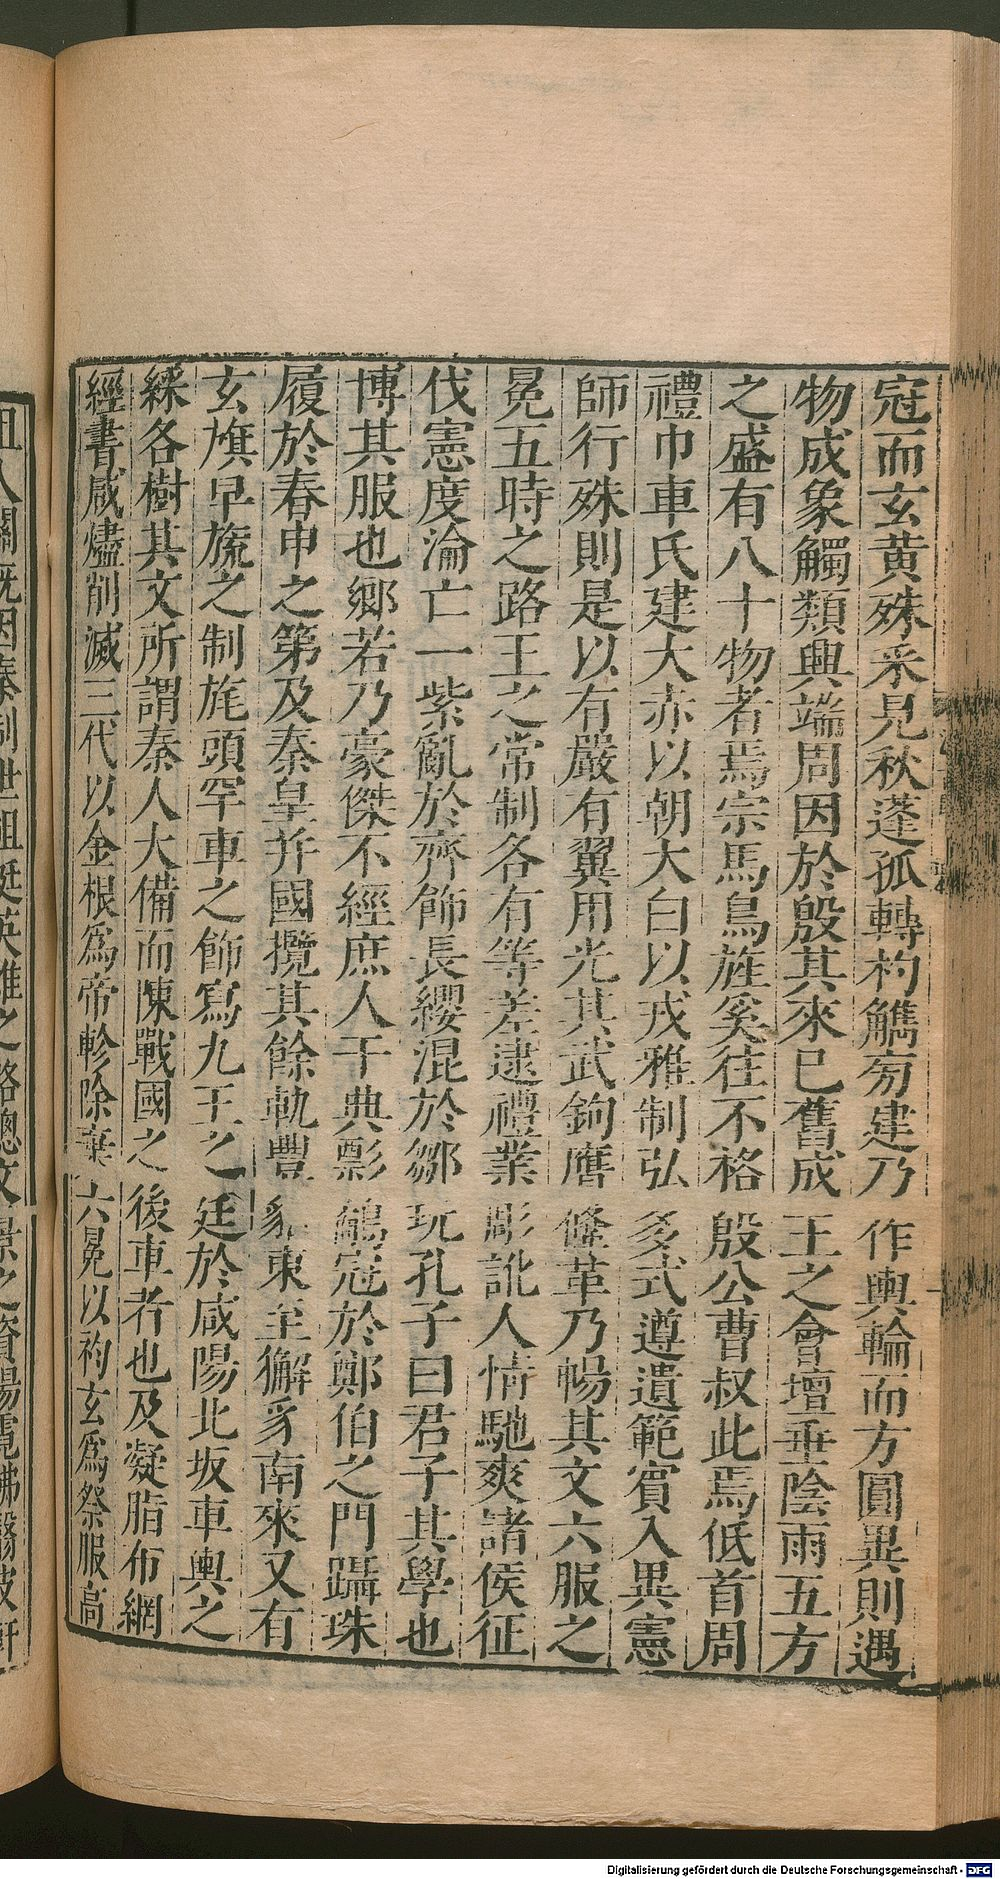 冠而玄黄殊采見秋蓬孤轉杓觿旁建乃作輿輪而方圓異則遇
物成象觸類興端周因於殷其來已舊成王之會壇垂陰雨五方
之盛有八十物者焉宗馬鳥旌奚往不格殷公曹叔此焉低首周
禮巾車氏建大赤以朝大白以戎雅制弘多式遵遺範賓入異憲
師行殊則是以有嚴有翼用光其武鉤膺鞗革乃暢其文六服之
冕五時之路王之常制各有等差逮禮業彫訛人情馳爽諸侯征
伐憲度淪亡一紫亂於齊飾長纓混於鄒玩孔子曰君子其學也
博其服也鄉若乃豪傑不經庶人干典彯鷸冠於鄭伯之門躡珠
履於春申之第及秦皇并國攬其餘軌豐貂東至獬豸南來又有
玄旗皁旒之制旄頭罕車之飾寫九王之廷於咸陽北坂車輿之
綵各樹其文所謂秦人大備而陳戰國之後車者也及凝脂布網
經書咸燼削滅三代以金根爲帝軫除棄六冕以袀玄爲祭服高
Digitalisierung gefördert durch die Deutsche Forschungsgemeinschaft - DFG